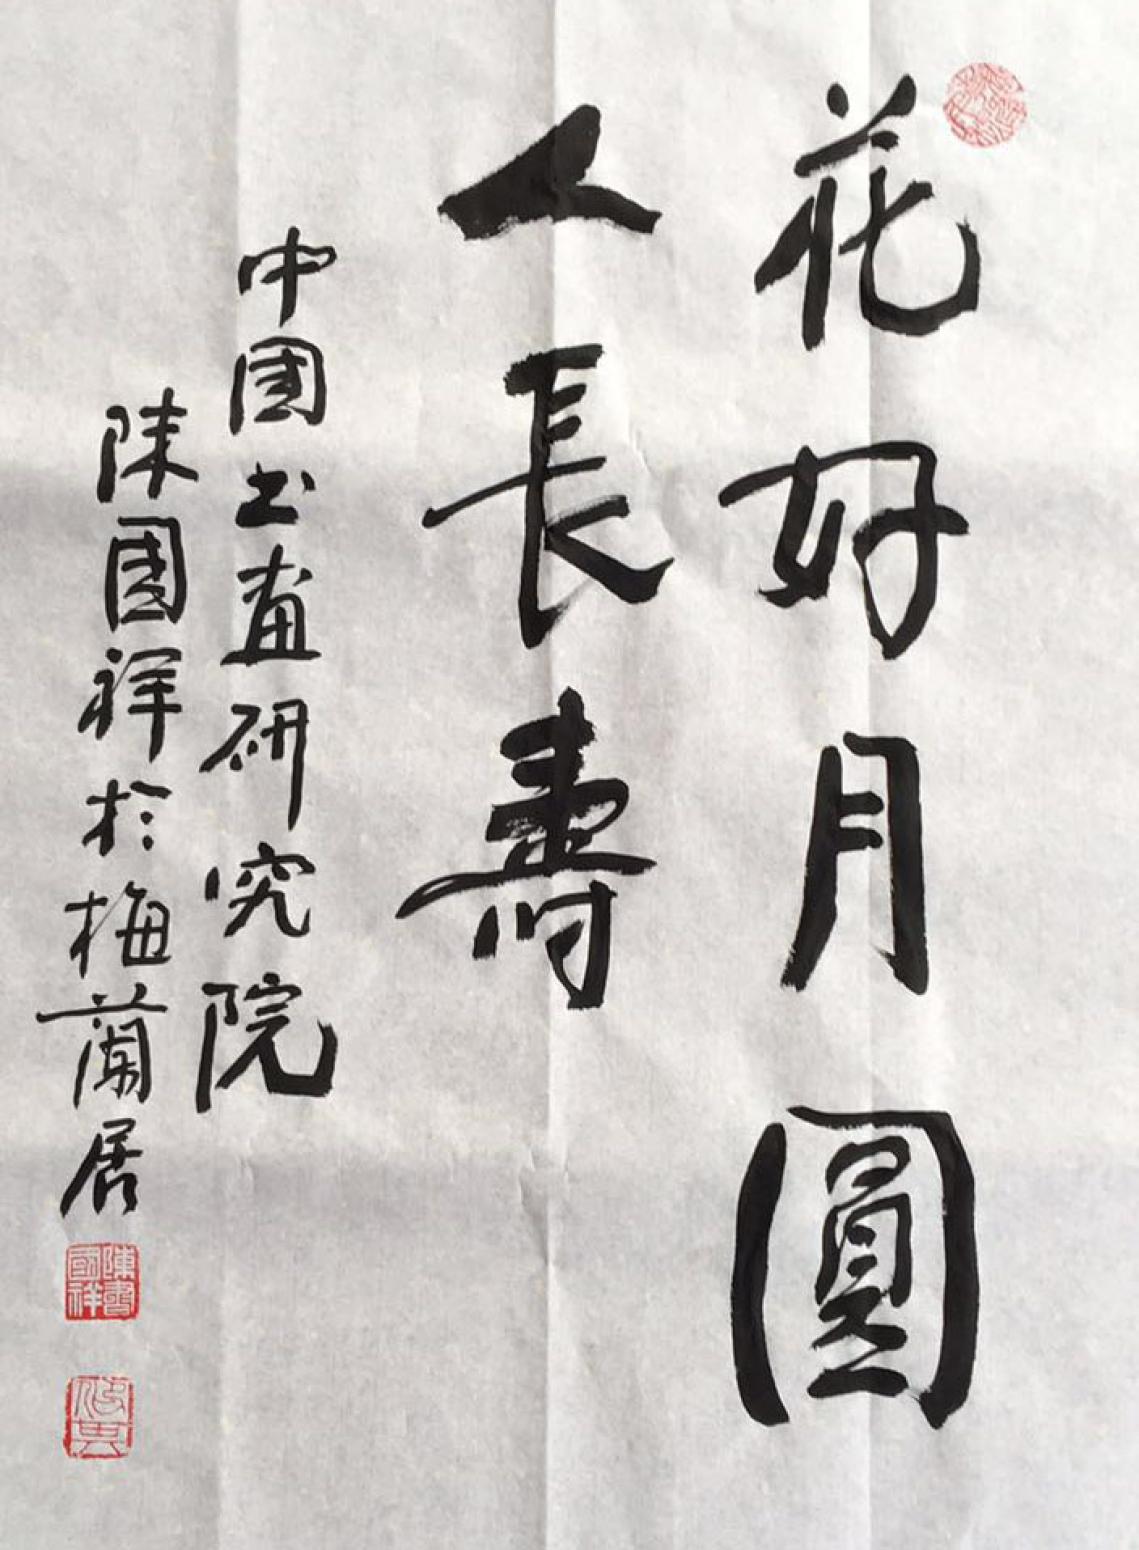 花好月圓
人長壽
中國书画研究院
陳國祥於梅蘭居
陳國祥書